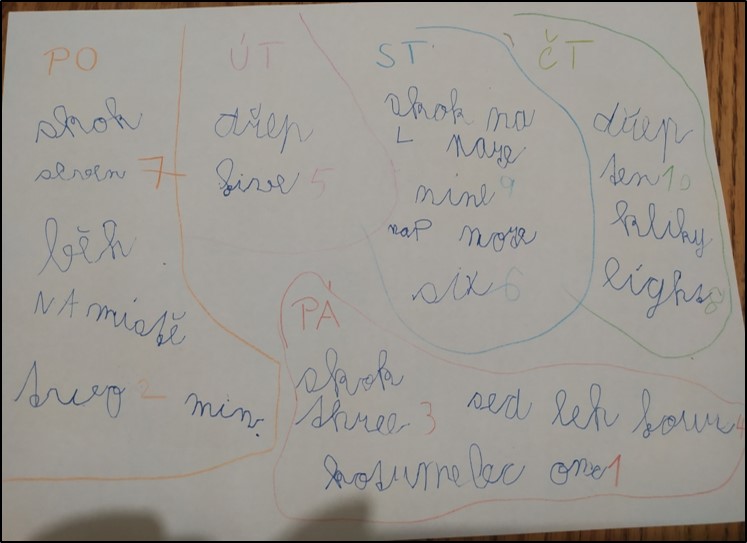 PO
skok
seven 7
běh
NA místě
two 2 min.
ÚT
dřep
five 5
ST
skok na
L noze
nine 9
na P noze
six 6
ČT
dřep
ten 10
kliky
eight 8
PÁ
skok
three 3
sed leh four 4
kotrmelec one 1